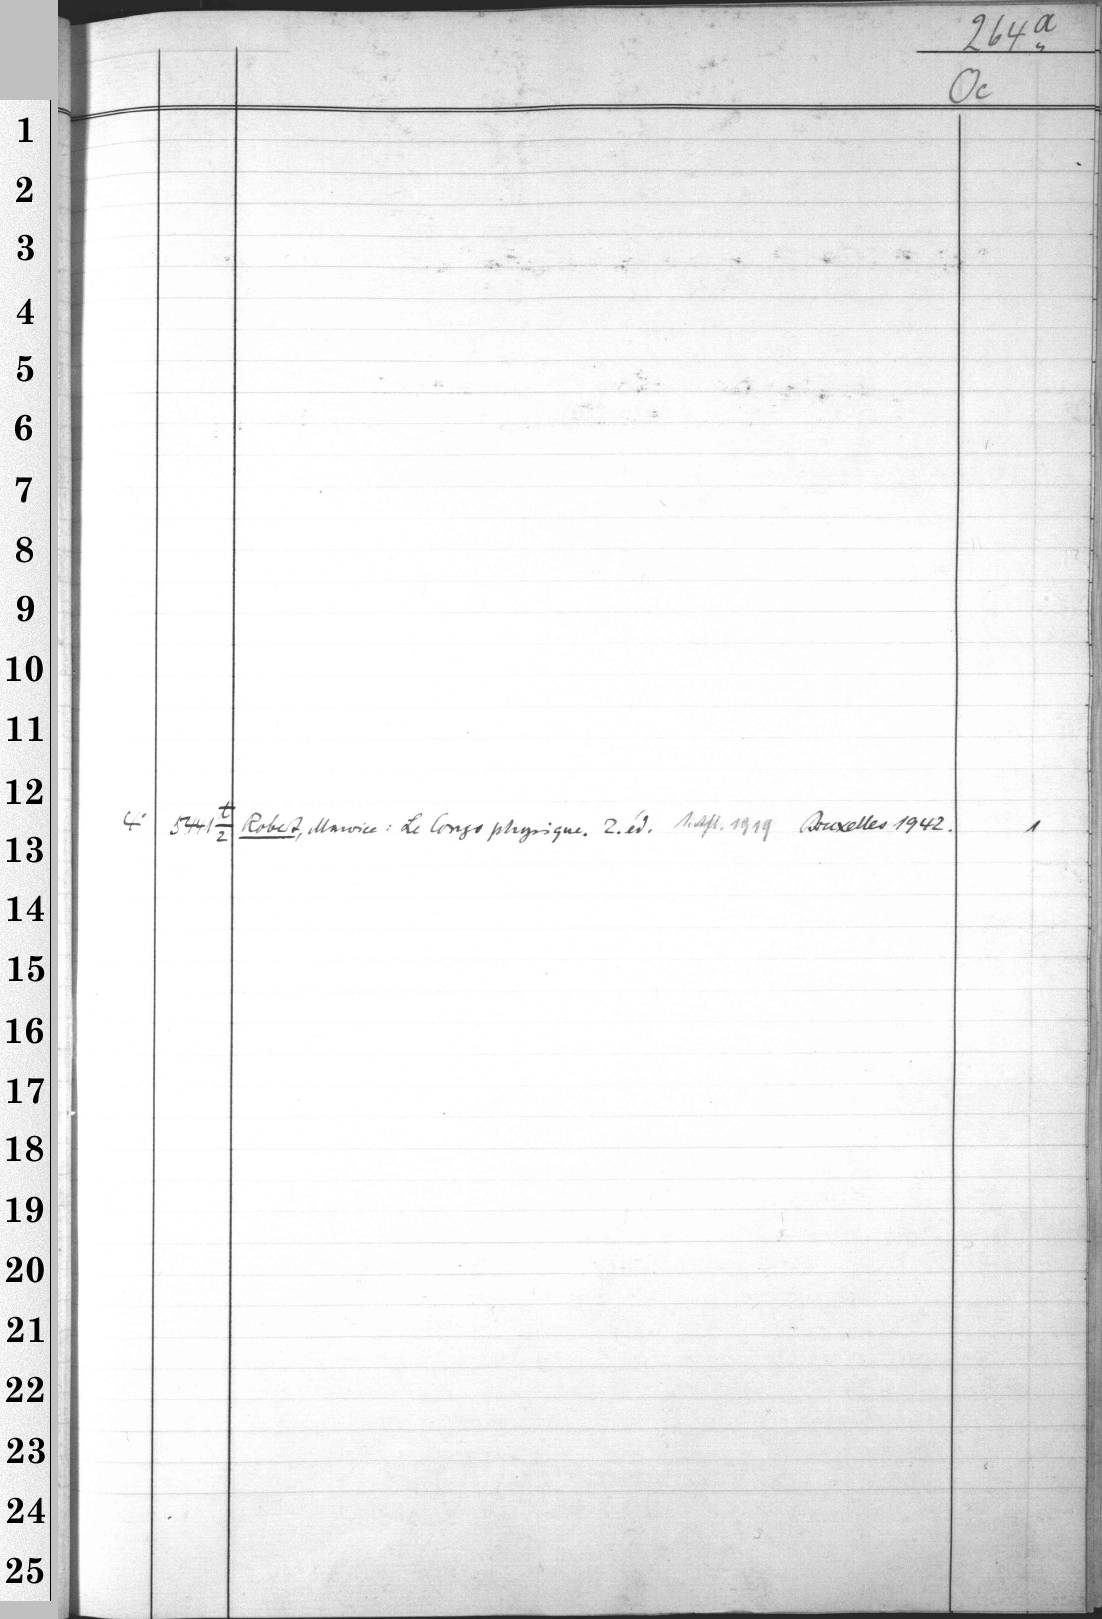 264 a
Oc
1
2
3
4
5
6
7
8
9
10
11
12
4° 5441 t/2 Robert, Maurice: Le Congo physique. 2. éd. 1919 Bruxelles 1942. 1
13
14
15
16
17
18
19
20
21
22
23
24
25